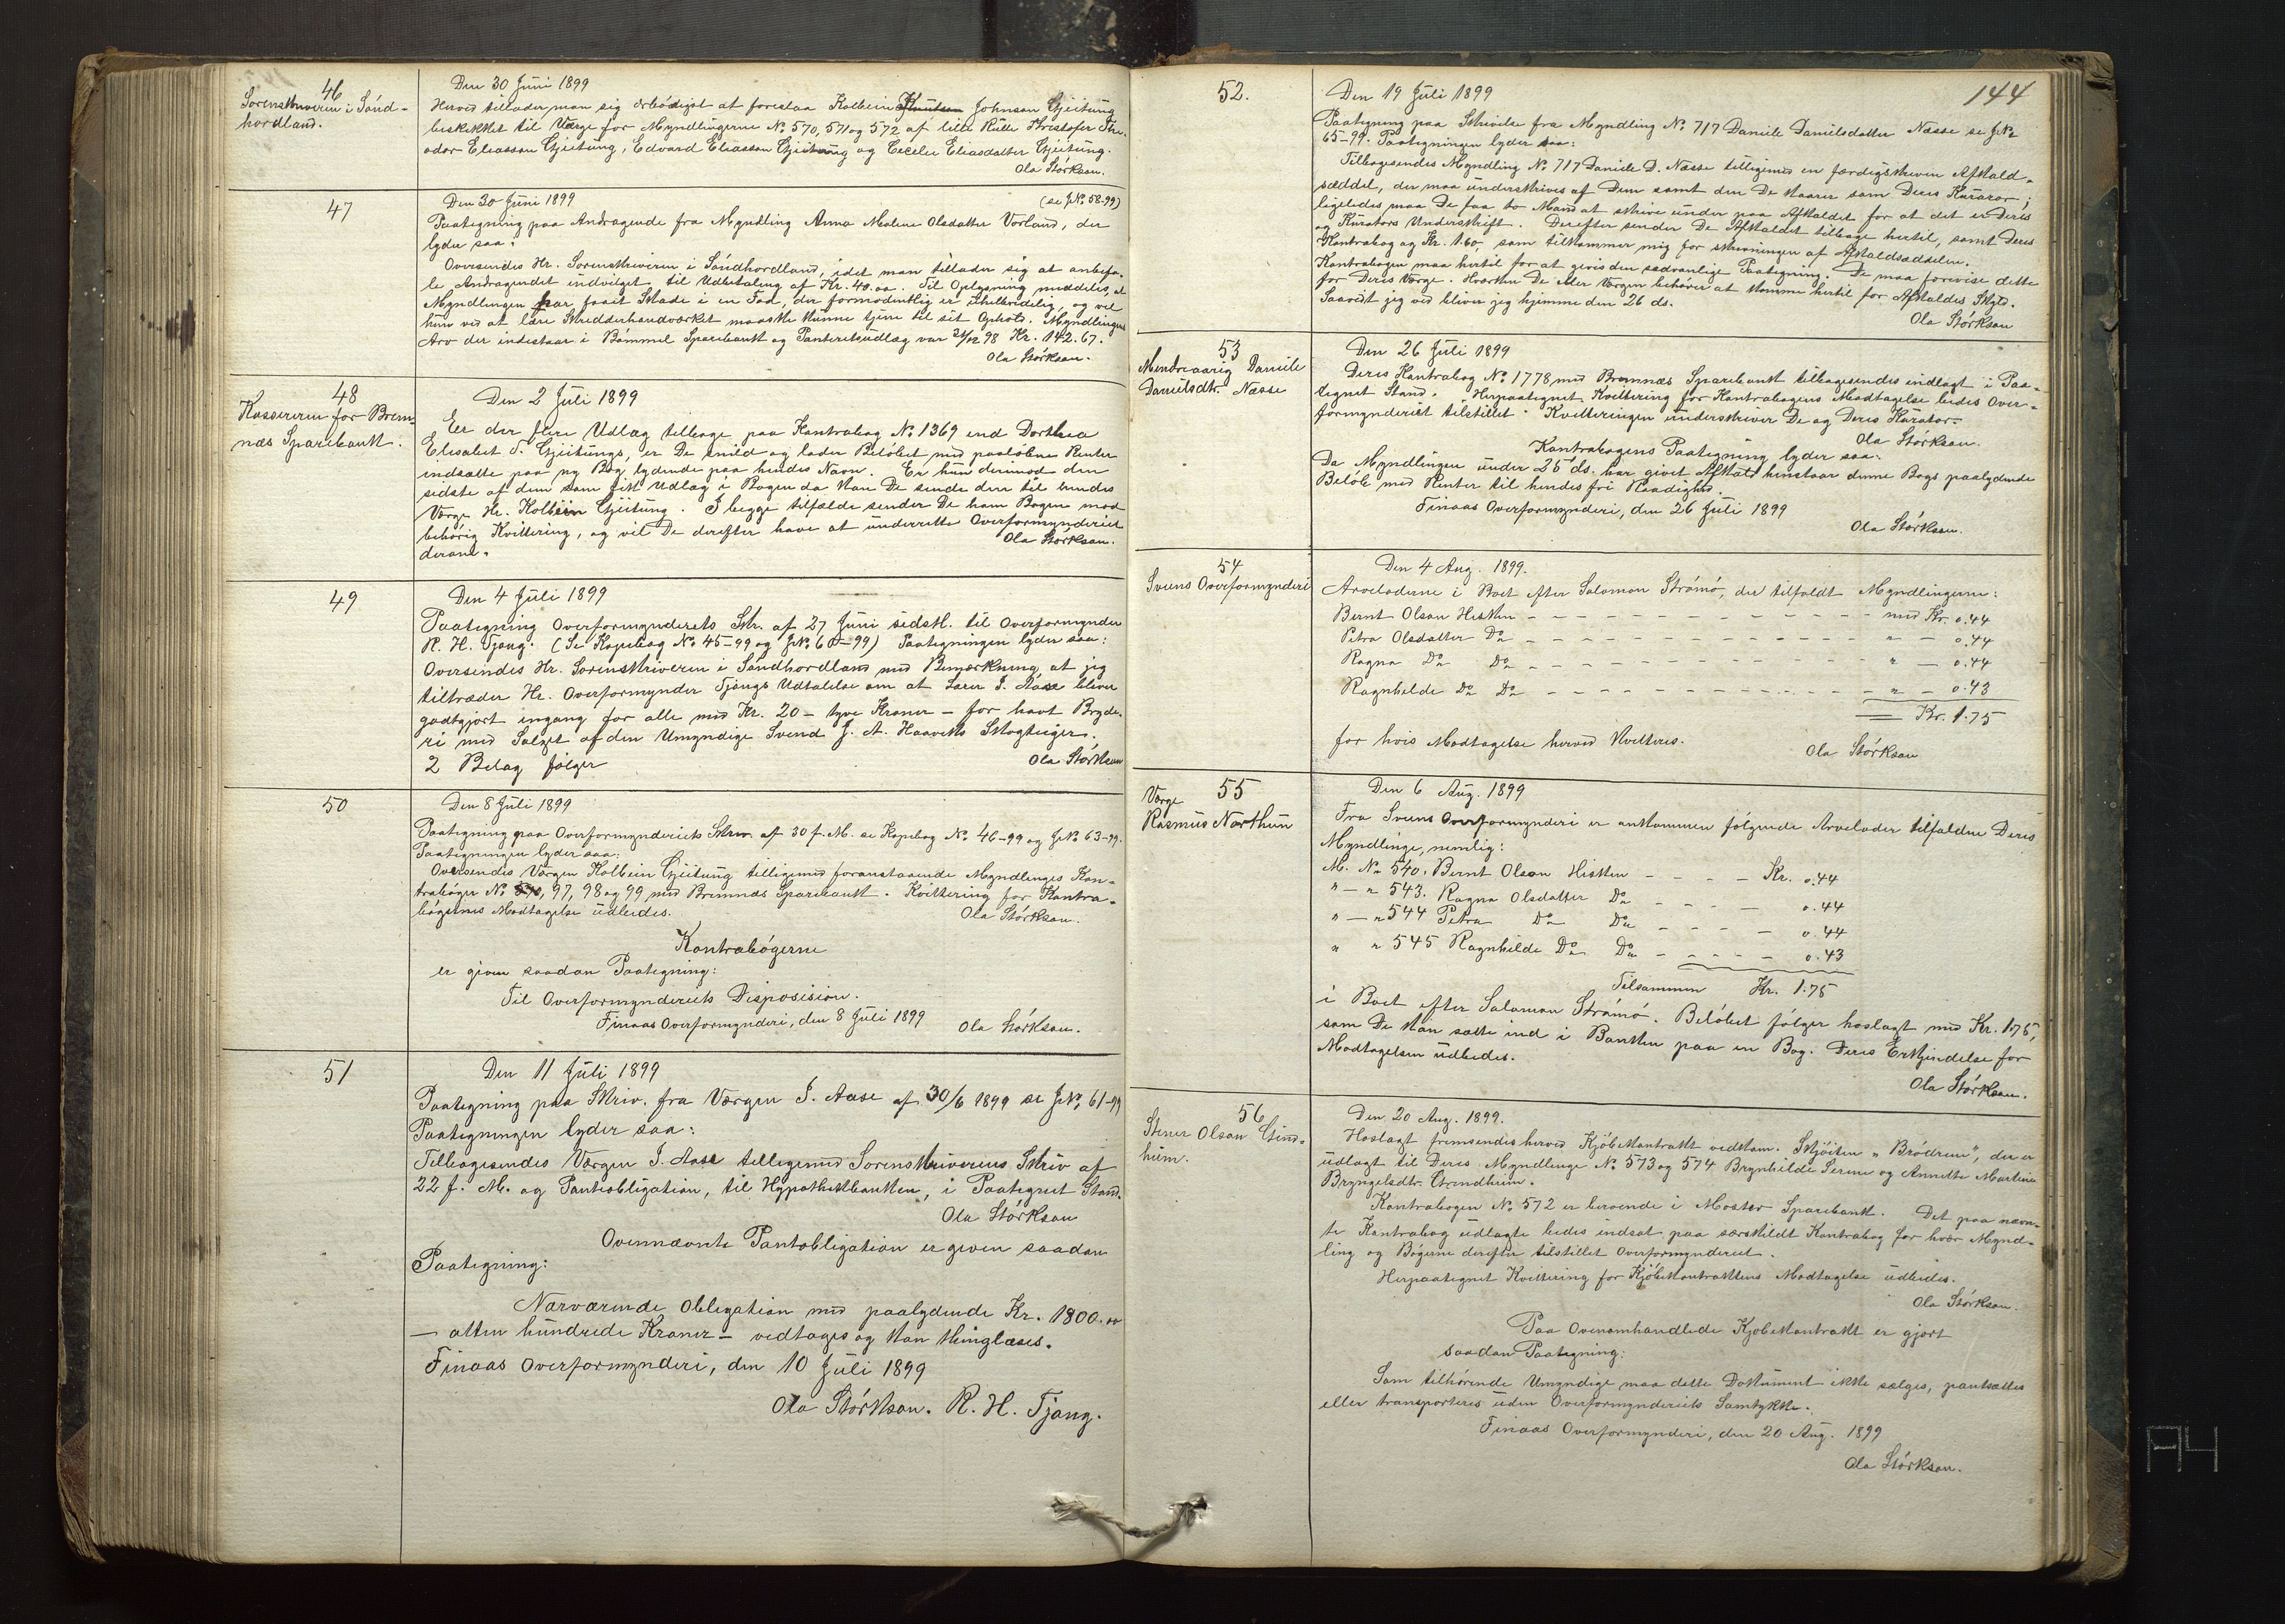 46
Sorenskriveren i Sønd-
hordland.
Den 30 Juni 1899
Herved tillader man sig ærbødigst at foreslaa Kolbein Knutsen Johnson Gjeitung
beskikket til Værge for Myndlingerne No. 570, 571 og 572 af lille Rulle Kristofer The-
odor Eliasson Gjeitung, Edvard Eliasson Gjeitung og Cecelie Eliasdatter Gjeitung.
Ola Størkson.
47
Den 30 Juni 1899
(se J.No. 58-99)
Paategning paa Andragende fra Myndling Anna Malene Olsdatter Vorland, der
lyder saa:
Oversendes Hr. Sorenskriveren i Søndhordland, idet man tillader sig at anbefa-
le Andragendet indvilget til Udbetaling af Kr. 40.00. Til Oplysning meddeles, at
Myndlingen har faaet Skade i en Fod, der formodentlig er uhelbredelig, og vil
hun ved at lære Skredderhandverket maaske kunne tjene til sit Ophold. Myndlingens
Arv der indestaar i Bømmel Sparebank og Panteretsudlæg var 31/12 98 Kr. 142.67.
Ola Størkson.
48
Kassereren for Brem-
næs Sparebank.
Den 2 Juli 1899
Er der flere Udlæg tilbage paa Kontrabog No. 1369 end Dorthea
Elisabet S. Gjeitungs, er De snild og lader Beløbet med paaløbne Renter
indsætte paa ny Bog lydende paa hendes Navn. Er hun derimod den
sidste af dem som fik Udlæg i Bogen da kan De sende den til hendes
Værge Hr. Kolbein Gjeitung. I begge tilfælde sender De ham Bogen mod
behørig Kvittering, og vil De derefter have at underrette Overformynderiet
derom.
Ola Størkson.
49
Den 4 Juli 1899
Paategning Overformynderiets Skr. af 27 Juni sidstl. til Overformynder
R. H. Tjong. (Se Kopibog No. 45-99 og J.No. 60-99) Paategningen lyder saa:
Oversendes Hr. Sorenskriveren i Søndhordland med Bemærkning at jeg
tiltræder Hr. Overformynder Tjongs Udtalelse om at Lærer I. Aase bliver
godtgjort engang for alle med Kr. 20 - tyve Kroner - for havt Bryde-
ri med Salget af den Umyndige Svend J. A. Haaviks Skogteiger.
2 Bilag følger
Ola Størkson
50
Den 8 Juli 1899
Paategning paa Overformynderiets Skriv. af 30 f. M. se Kopibog No. 46-99 og J.No. 63-99.
Paategningen lyder saa:
Oversendes Værgen Kolbein Gjeitung tilligemed foranstaaende Myndlinges Kon-
trabøger No. 97, 98 og 99 med Bremnæs Sparebank. Kvittering for Kontra-
bøgernes Modtagelse udbedes.
Ola Størkson.
Kontrabøgerne
er given saadan Paategning:
Til Overformynderiets Disposision.
Finaas Overformynderi, den 8 Juli 1899
Ola Størkson.
51
Den 11 Juli 1899
Paategning paa Skriv. fra Værgen I. Aase af 30/6 1899 se J.No. 61-99
Paategningen lyder saa:
Tilbagesendes Værgen I. Aase tilligemed Sorenskriverens Skriv af
22 f. M. og Panteobligation, til Hypothekbanken, i Paategnet Stand.
Ola Størkson
Ovennævnte Pantobligation er given saadan
Paategning:
Nærværende Obligation med paalydende Kr. 1800.00
- atten hundrede Kroner - vedtages og kan thinglæses.
Finaas Overformynderi, den 10 Juli 1899
Ola Størkson. R. H. Tjong.
144
52.
Den 19 Juli 1899
Paategning paa Skrivelse fra Myndling No. 717 Daniele Danielsdatter Næsse se J.No.
65-99. Paategningen lyder saa:
Tilbagesendes Myndling No. 717 Daniele D. Næsse tilligemed en færdigskreven Afkald-
sæddel, der maa underskrives af Dem samt den De kaarer som Deres Kurator;
ligeledes maa De faa to Mænd at skrive under paa Afkaldet for at det er Deres
og Kurators Underskrift. Derefter sender De Afkaldet tilbage hertil, samt Deres
Kontrabog og Kr. 1.60, som tilkommer mig for skrivningen af Afkaldssedelen.
Kontrabogen maa hertil for at gives den sædvanlige Paategning. De maa forevise dette
for Deres Værge. Hverken De eller Værgen behøver at komme hertil for Afkaldes Skyld.
Saavidt jeg ved bliver jeg hjemme den 26 ds.
Ola Størkson
53
Mindreaarig Daniele
Danielsdtr. Næsse
Den 26 Juli 1899
Deres Kontrabog No. 1778 med Bremnæs Sparebank tilbagesendes indlagt i Paa-
tegnet Stand. Herpaategnet Kvittering for Kontrabogens Modtagelse bedes Over-
formynderiet tilstillet. Kvitteringen underskriver De og Deres Kurator.
Ola Størkson.
Kontrabogens Paategning lyder saa:
Da Myndlingen under 25 ds. har givet Afkald henstaar denne Bogs paalydende
Beløb med Renter til hendes fri Raadighed.
Finaas Overformynderi, den 26 Juli 1899
Ola Størkson.
54
Sveens Overformynderi
Den 4 Aug. 1899.
Arvelodderne i Boet efter Salomon Strømø, der tilfaldt Myndlingerne:
Bernt Olson Hisken - - - - - - - - - - - med Kr. 0.44
Petra Olsdatter Do - - - - - - - - - - - " - 0.44
Ragna Do Do - - - - - - - - - - - " - 0.44
Ragnhilde Do Do - - - - - - - - - - - " - 0.43
Kr. 1.75
for hvis Modtagelse herved kvitteres.
Ola Størkson
55
Værge
Rasmus Northun
Den 6 Aug. 1899
Fra Sveens Overformynderi er ankommen følgende Arveloder tilfaldne Deres
Myndlinge, nemlig:
M. No. 540. Bernt Olson Hisken - - - - Kr. 0.44
" - " 543. Ragna Olsdatter Do - - - - 0.44
" - " 544 Petra Do Do - - - - 0.44
" " 545 Ragnhilde Do Do - - - - 0.43
Tilsammen Kr. 1.75
i Boet efter Salomon Strømø. Beløbet følger hoslagt med Kr. 1.75,
som De kan sætte ind i Banken paa en Bog. Deres Erkjendelse for
Modtagelsen udbedes.
Ola Størkson.
56
Stener Olson Grind-
heim.
Den 20 Aug. 1899.
Hoslagt fremsendes herved Kjøbekontrakt vedkom. Skjøiten "Brødrene", der er
udlagt til Deres Myndlinge No. 573 og 574 Brynhilde Serine og Annette Martine
Bryngelsdtr. Grindheim.
Kontrabogen No. 572 er beroende i Moster Sparebank. Det paa nævn-
te Kontrabog udlagte bedes indsat paa særskildt Kontrabog for hver Mynd-
ling og Bøgerne derefter tilstillet Overformynderiet.
Herpaategnet Kvittering for Kjøbekontraktens Modtagelse udbedes.
Ola Størkson.
Paa Ovenomhandlede Kjøbekontrakt er gjort
saadan Paategning:
Som tilhørende Umyndige maa dette Dokument ikke sælges, pantsættes
eller transporteres uden Overformynderiets Samtykke.
Finaas Overformynderi, den 20 Aug. 1899
Ola Størkson.